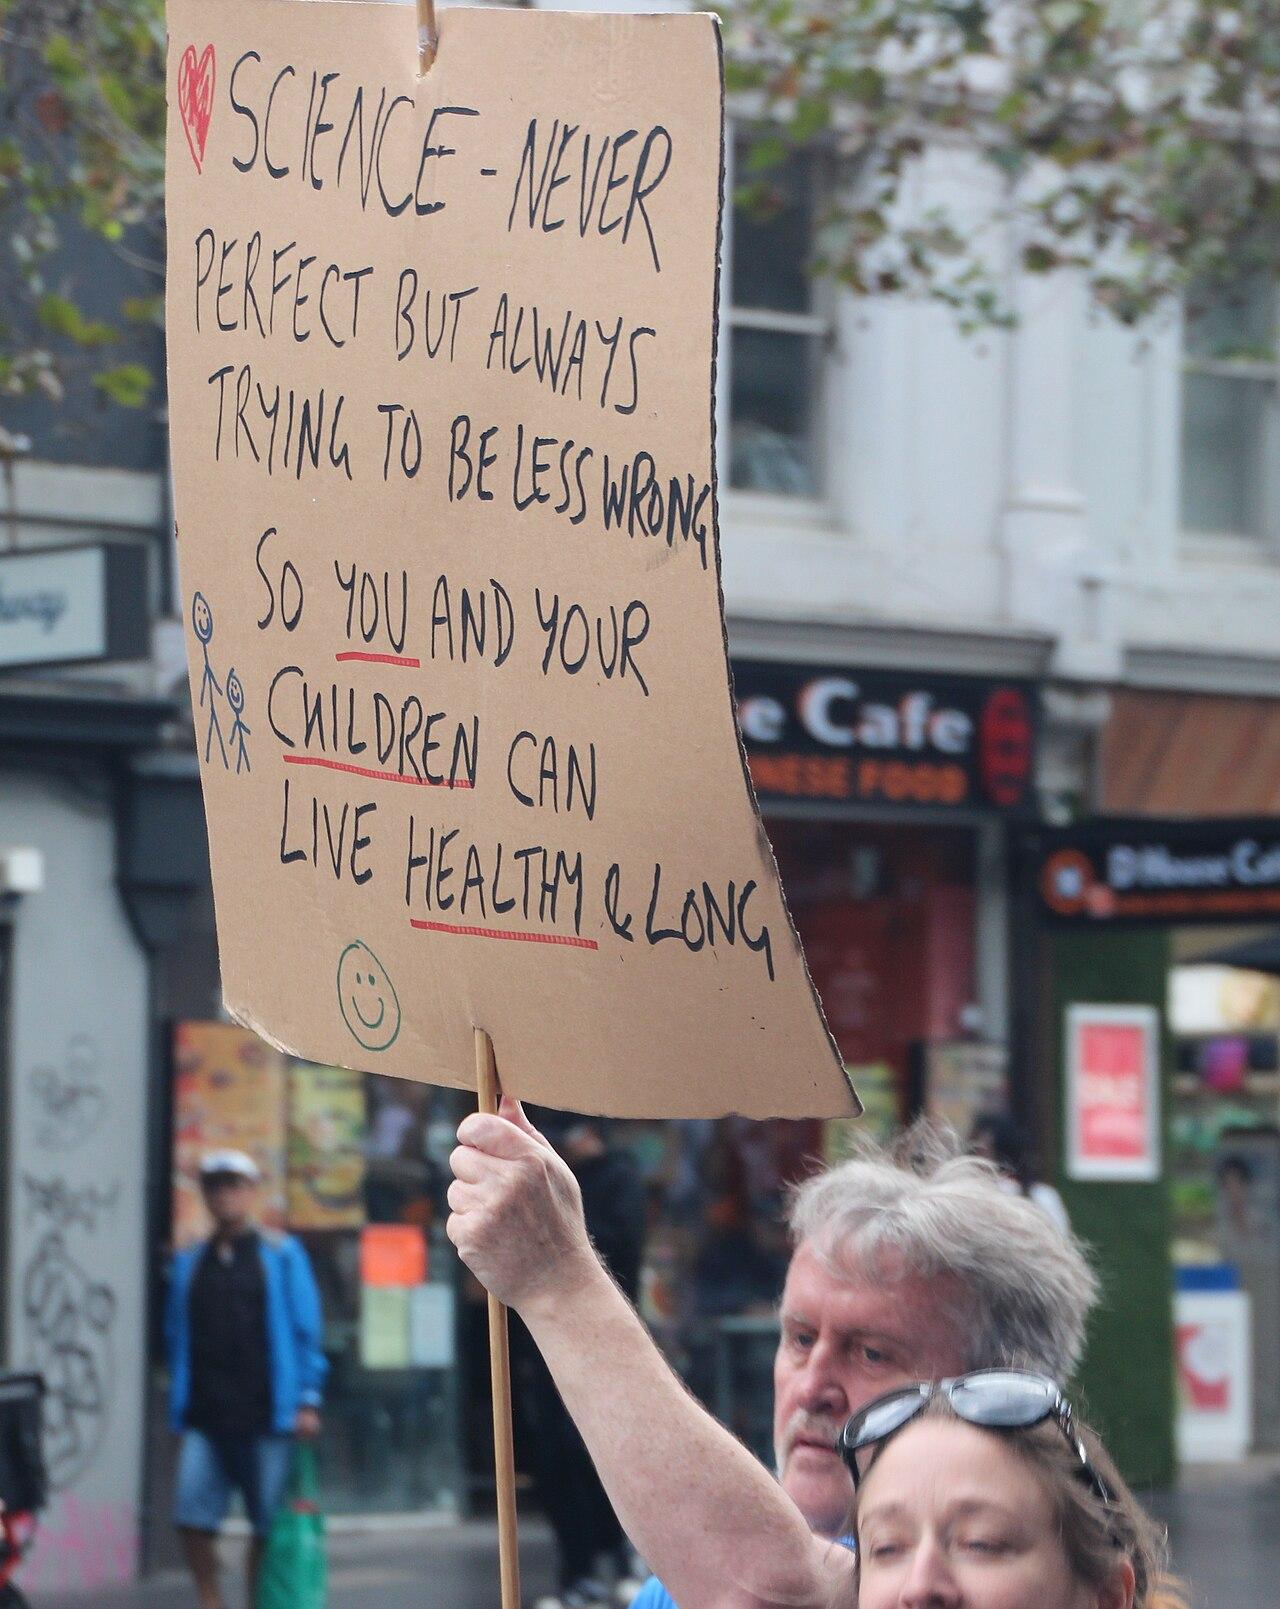 SCIENCE - NEVER
PERFECT BUT ALWAYS
TRYING TO BE LESS WRONG
SO YOU AND YOUR
CHILDREN CAN
LIVE HEALTHY & LONG
e Cafe
NESE FOOD
House
SALE